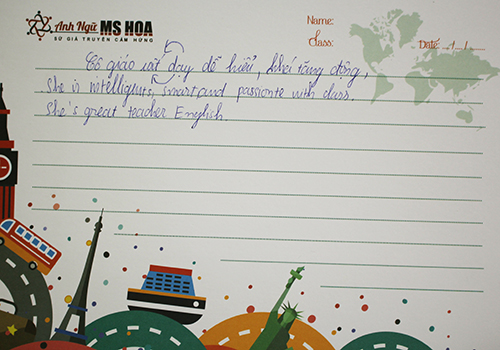 Anh Ngữ MS HOA
SỨ GIẢ TRUYỀN CẢM HỨNG
Name:
Class:
Date: ./../..
Cô giáo rất dạy dễ hiểu, khi tăng động,
She is intelligents, smart and passionte with class.
She's great teacher English.